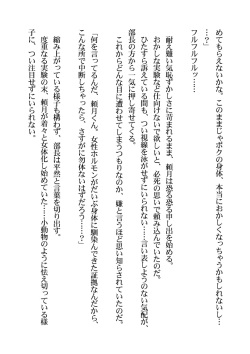 めてもらえないかな。このままじゃボクの身体、本当におかしくなっちゃうかもしれないし…
…？」
フルフルフルッ……
耐え難い気恥ずかしさに苛まれるまま、頼月は恐る恐る申し出を始める。
おかしな実験など仕向けないで欲しいと、必死の思いで頼み込んでいたのだ。
ひたすら訴えている間も、つい視線を泳がせずにいられない……言い表しようのない気配が、
部長の方から一気に押し寄せてくる。
これからどんな目に遭わせてしまうつもりなのか、嫌と言うほど思い知らされていたのだ。
「何を言ってるんだ、頼月くん。女性ホルモンがだいぶ身体に馴染んできた証拠なんだから、
こんな所で中断しちゃったら、さすがに勿体ないはずだろう……？」
縮み上がっている様子も構わず、部長は平然と言葉を切り出す。
度重なる実験の末、頼月が着々と女体化し始めていた……小動物のように怯え切っている様
子に、つい注目せずにいられない。